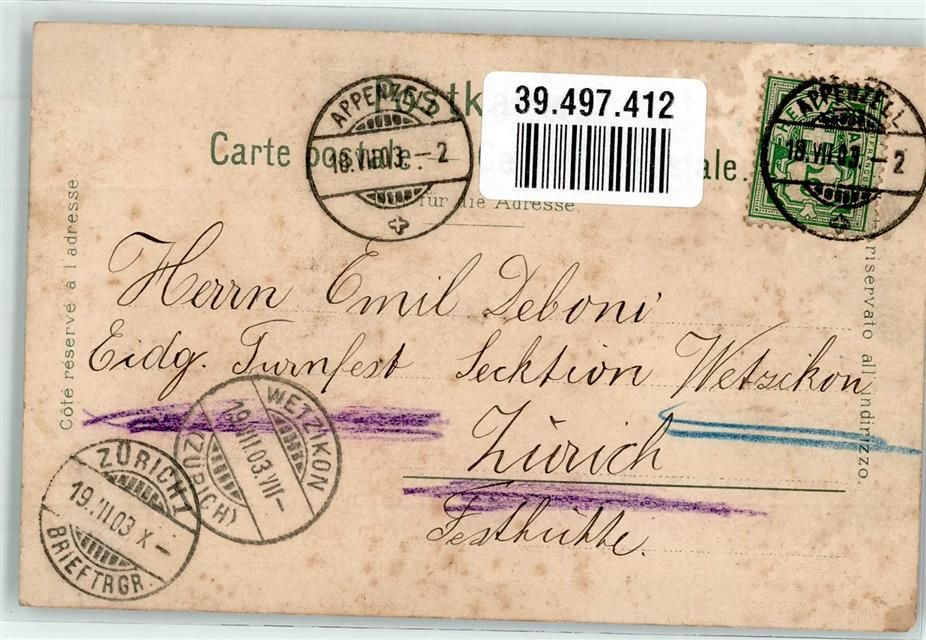 Postk
39.497.412
Carte postale.
ale.
für die Adresse.
Côté réservé à l'adresse
riservato all'indirizzo
APPENZELL
18.VII.03.-2
APPENZELL
18.VII.03.-2
HELVETIA
5
Herrn Emil Deboni
Eidg. Turnfest Secktion Wetzikon
Zürich
Festhütte.
WETZIKON
19.VII.03.VII-
(ZÜRICH)
ZÜRICH 1
19.VII.03 X-
BRIEFTRGR.